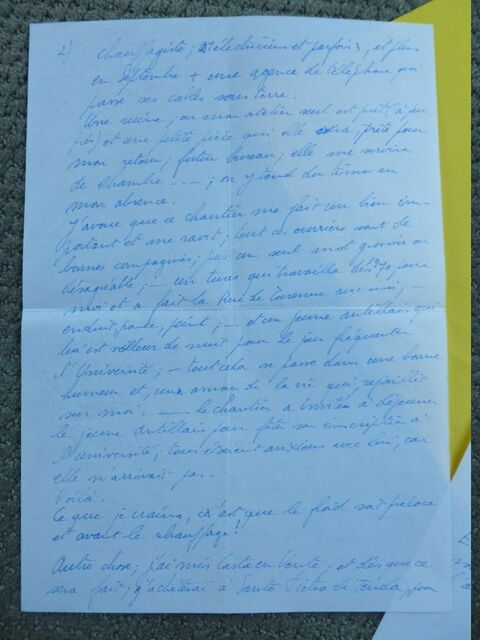 2) chauffagiste; électriciens et parfois, et plus
en septembre + une agence de téléphone qui
passe ses cables sous terre.
Une ruine; ou mon atelier seul est prêt (à peu
près) et une petite pièce qui elle sera prête pour
mon retour; futur bureau; elle me servira
de chambre ---; on y tend du tissu en
mon absence.
J'avoue que ce chantier me fait un bien im-
portant et me ravit; tout ces ouvriers sont de
bonnes compagnies; pas un seul mot grossier ou
désagréable; — un turc qui travailla dès 70 pour
moi et a fait la Rue de Turenne avec moi; —
enduit, ponce, peint; — et un jeune antillais qui
lui est veilleur de nuit pour le jour fréquenter
l'Université; — tout cela se passe dans une bonne
humeur et, un amour de la vie qui rejaillit
sur moi. — le chantier a invité à déjeuner
le jeune antillais pour fêter son inscription à
l'université; tous étaient anxieux avec lui, car
elle n'arrivait pas.
Voilà.
Ce que je crains, c'est que le froid soit précoce
et avant le chauffage!
Autre chose; j'ai mis Casta en Vente; et dès que ce
sera fait; j'achèterai à Santo Pietro di Tenda, pour